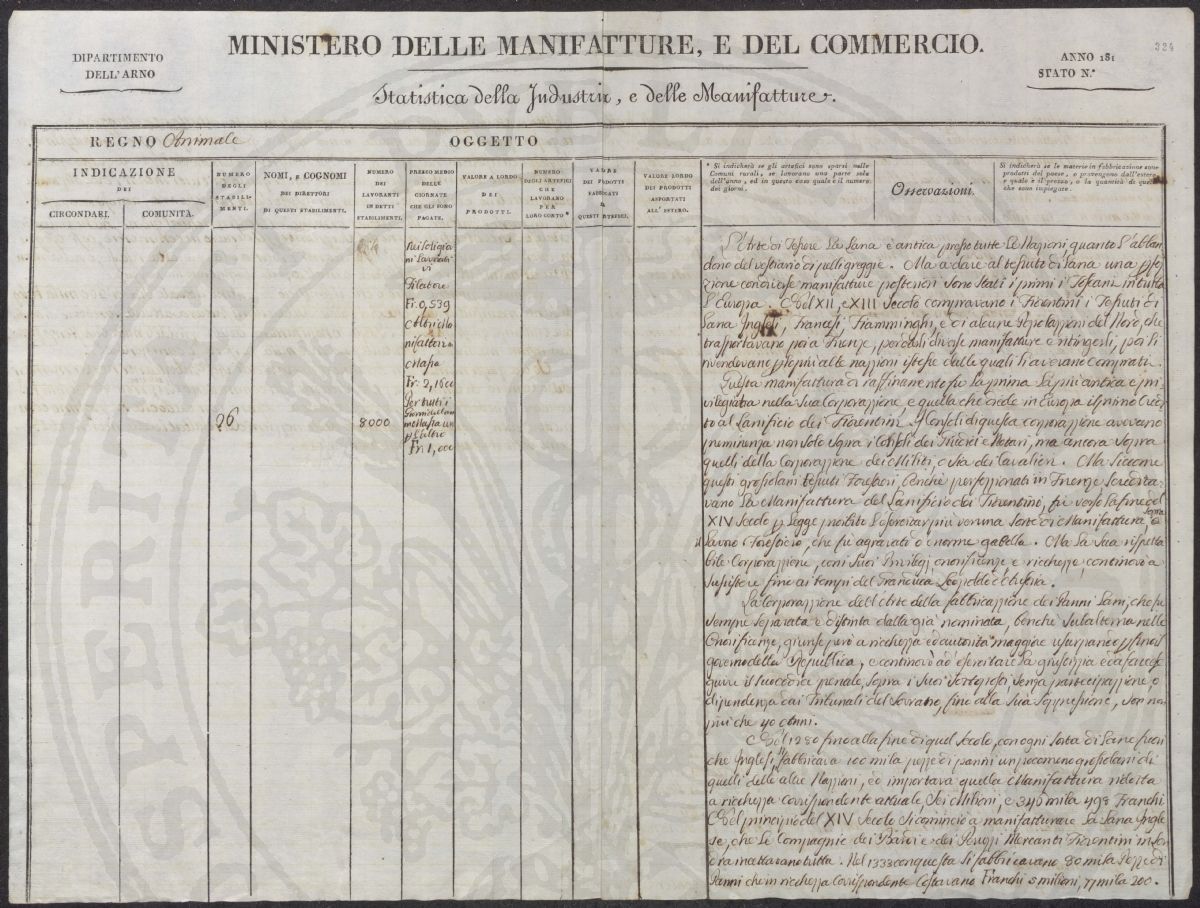 334
DIPARTIMENTO
DELL'ARNO
MINISTERO DELLE MANIFATTURE, E DEL COMMERCIO.
ANNO 181
STATO N.°
Statistica della Industria, e delle Manifatture.
REGNO Animale
OGGETTO
INDICAZIONE
DEI
CIRCONDARI.
COMUNITÀ.
NUMERO
DEGLI
STABILI-
MENTI.
NOMI, E COGNOMI
DEI DIRETTORI
DI QUESTI STABILIMENTI.
NUMERO
DEI
LAVORANTI
IN DETTI
STABILIMENTI.
PREZZO MEDIO
DELLE
GIORNATE
CHE GLI SONO
PAGATE.
VALORE A LORDO
DEI
PRODOTTI.
NUMERO
DEGLI ARTEFICI
CHE
LAVORANO
PER
LORO CONTO*
VALORE
DEI PRODOTTI
FABBRICATI
DA
QUESTI ARTEFICI.
VALORE LORDO
DEI PRODOTTI
ASPORTATI
ALL'ESTERO.
* Si indicherà se gli artefici sono sparsi nelle
Comuni rurali, se lavorano una parte sola
dell'anno, ed in questo caso quale è il numero
dei giorni.
Osservazioni.
Si indicherà se le materie in fabbricazione sono
prodotti del paese, o provengono dall'estero,
e quale è il prezzo, o la quantità di quelle
che sono impiegate.
26
8000
Fr: 0,539
Fr: 2,16
Per tutti i
Fr: 1,000
L'Arte di Tessere la Lana è antica presso tutte le Nazioni, quanto l'abban-
dono del vestiario di pelli greggie. Ma a dare al tessuto di Lana una perfe-
zione con diverse manifatture posteriori sono stati i primi i Toscani in tutta
l'Europa. Nel XII, e XIII Secolo compravano i Fiorentini i Tessuti di
Lana Inglesi, Francesi, Fiamminghi, e di alcune Popolazioni del Nord, che
trasportavano poi a Firenze, per darli diverse manifatture e ritingerli, poi li
rivendevano perfino alle nazioni istesse dalle quali li avevano comprati.
Questa manifattura di raffinamento fu la prima la più antica e pri-
vilegiata nella sua Corporazione, e quella che diede in Europa il primo Credi-
to al Lanificio dei Fiorentini. I Consoli di questa corporazione avevano
preminenza non solo sopra i Consoli dei Giudici e Notari, ma ancora sopra
quelli della Corporazione dei Militi, o sia dei Cavalieri. Ma siccome
questi grossolani tessuti Forestieri, benchè perfezionati in Firenze scredita-
vano la Manifattura del Lanificio dei Fiorentini, fu verso la fine del
XIV Secolo per Legge proibito l'esercitar più veruna sorte di Manifattura, sopra
il lavoro Forestiero, che fu agravato d'enorme gabella. Ma la sua rispetta-
bile Corporazione, con i suoi Privilegi, onorificenze, e ricchezze, continovò a
sussistere fino ai tempi del Granduca Leopoldo d'Austria.
La Corporazione dell'Arte della fabbricazione dei Panni Lani, che fu
sempre separata e distinta dalla già nominata, benchè subalterna nelle
Onorificenze, giunse però a ricchezza ed autorità maggiore usurpando perfino il
governo della Repubblica, e continovò ad esercitare la giustizia e a far ese-
guire il suo codice penale, sopra i suoi sottoposti senza partecipazione, o
dipendenza dai Tribunali del Sovrano, fino alla sua soppressione, son non
più che 40 anni.
Nel 1280 fino alla fine di quel secolo, con ogni sorta di Lane fuori
che Inglesi, si fabbricava 100 mila pezze di panni un poco meno grossolani di
quelli delle altre Nazioni, ed importava quella Manifattura ridotta
a ricchezza corrispondente attuale Sei Milioni, e 345 mila 498 Franchi
Nel principio del XIV Secolo si cominciò a manifatturare la Lana Ingle-
se, che le Compagnie dei Bardi e dei Peruzzi Mercanti Fiorentini in Lon-
dra incettavano tutta. Nel 1333 con questa si fabbricavano 80 mila Pezze di
Panni che in ricchezza corrispondente Costavano Franchi 5 milioni, 77 mila 200.